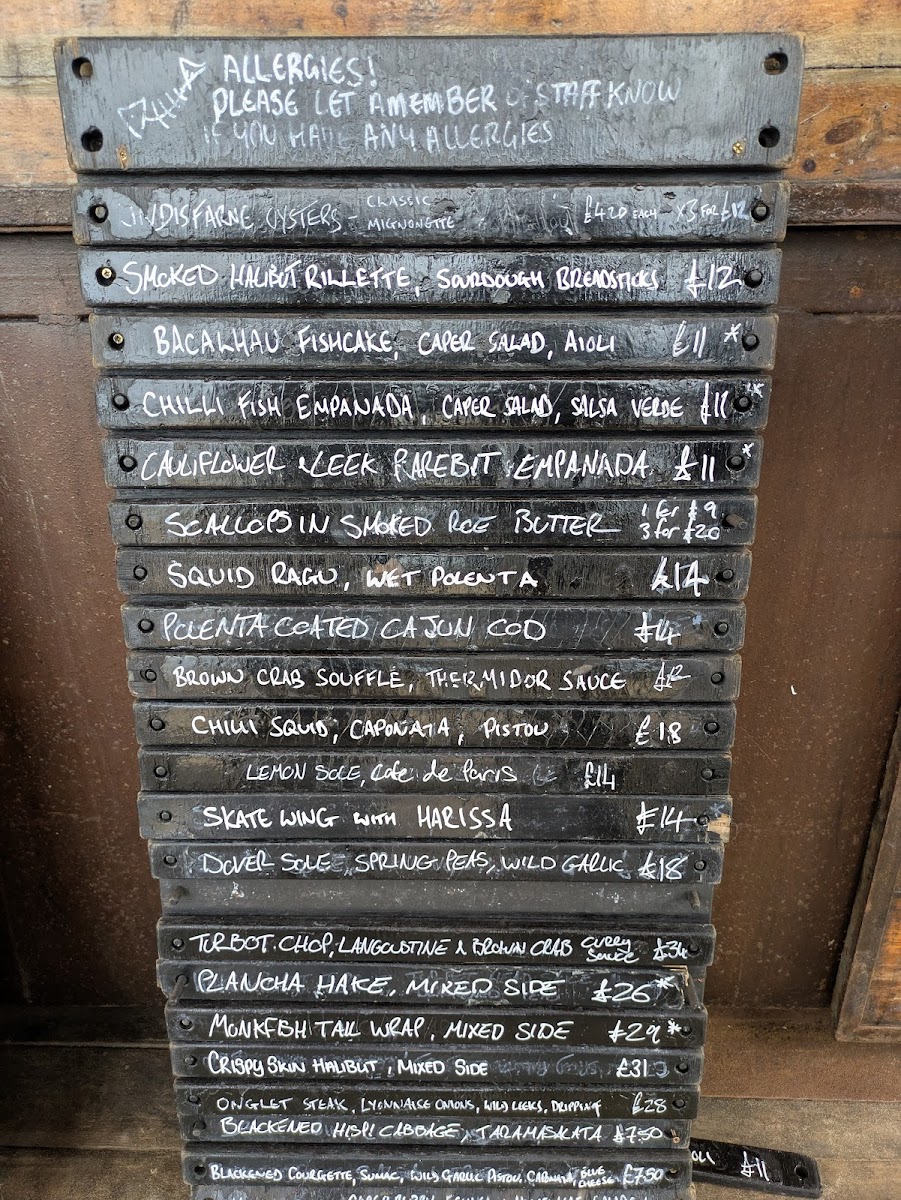 ALLERGIES!
PLEASE LET A MEMBER OF STAFF KNOW
IF YOU HAVE ANY ALLERGIES
LINDISFARNE OYSTERS - CLASSIC MIGNONETTE £4.20 EACH X3 FOR £12
SMOKED HALIBUT RILLETTE, SOURDOUGH BREADSTICKS £12
BACALHAU FISHCAKE, CAPER SALAD, AIOLI £11 *
CHILLI FISH EMPANADA, CAPER SALAD, SALSA VERDE £11 *
CAULIFLOWER & LEEK RAREBIT EMPANADA £11 *
SCALLOPS IN SMOKED ROE BUTTER 1 for £9
3 for £20
SQUID RAGU, WET POLENTA £14
POLENTA COATED CAJUN COD £14
BROWN CRAB SOUFFLÉ, THERMIDOR SAUCE £12
CHILLI SQUID, CAPONATA, PISTOU £18
LEMON SOLE, Cafe de Paris £14
SKATE WING WITH HARISSA £14
DOVER SOLE, SPRING PEAS, WILD GARLIC £18
TURBOT CHOP, LANGOUSTINE & BROWN CRAB CURRY SAUCE £34
PLANCHA HAKE, MIXED SIDE £26 *
MONKFISH TAIL WRAP, MIXED SIDE £29 *
CRISPY SKIN HALIBUT, MIXED SIDE £31
ONGLET STEAK, LYONNAISE ONIONS, WILD LEEKS, DRIPPING £28
BLACKENED HISPI CABBAGE, TARAMASALATA £7.50
BLACKENED COURGETTE, SUMAC, WILD GARLIC PISTOU, BLUE CHEESE £7.50
OLI £11